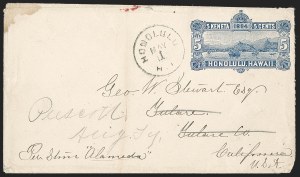 5 KENETA 1884 5 CENTS
HONOLULU
5 5
HONOLULU, HAWAII
Geo W. Stewart Esq.
Prescott Tulare
Ariz Ty Tulare Co.
Per Stmr "Alameda" California
U.S.A